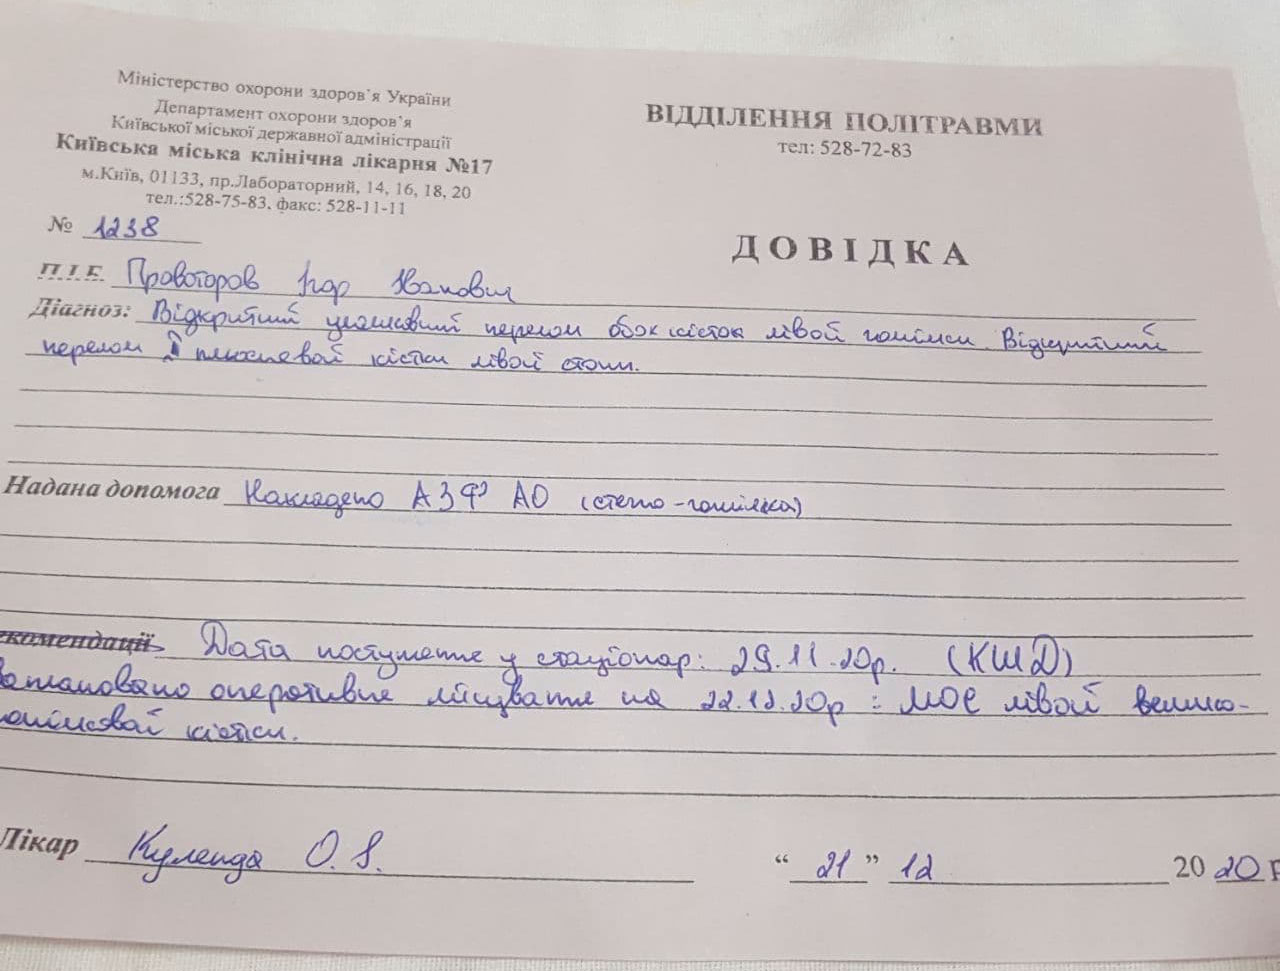 Міністерство охорони здоров'я України
Департамент охорони здоров'я
Київської міської державної адміністрації
Київська міська клінічна лікарня №17
м.Київ, 01133, пр.Лабораторний, 14, 16, 18, 20
тел.:528-75-83. факс: 528-11-11
ВІДДІЛЕННЯ ПОЛІТРАВМИ
тел: 528-72-83
№ 1238
ДОВІДКА
П.І.Б. Провоторов Ігор Іванович
Діагноз: Відкритий уламковий перелом обох кісток лівої гомілки. Відкритий
перелом I плюсневої кістки лівої стопи.
Надана допомога Накладено АЗФ АО (стегно-гомілка)
екомендації Дата поступлення у стаціонар: 29.11.20р. (КШД)
Заплановано оперативне лікування на 22.12.20р : МОС лівої велико-
гомілкової кістки.
Лікар Куленда О.
“ 21 ” 12 2020 р